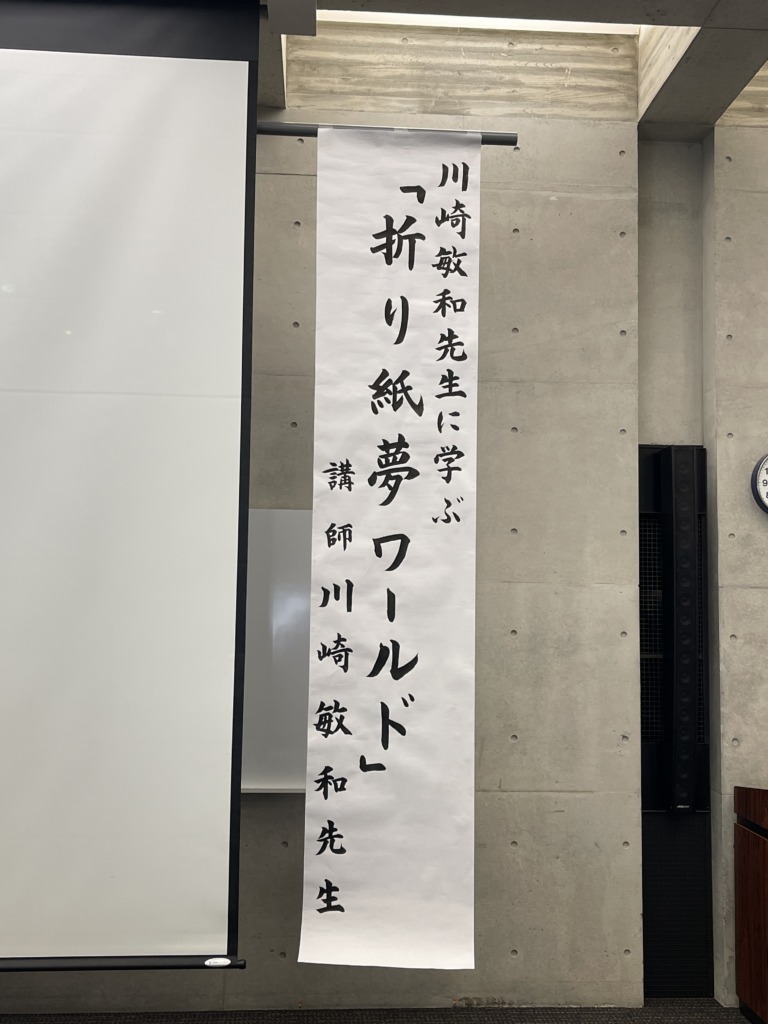 川崎敏和先生に学ぶ
「折り紙夢ワールド」
講師川崎敏和先生